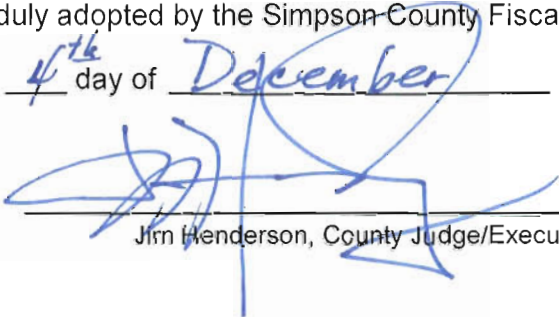 duly adopted by the Simpson County Fisca
4th day of December
Jim Henderson, County Judge/Execu